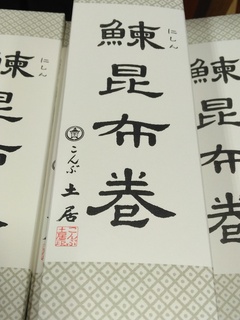 鰊昆布巻
にしん
こんぶ土居
鰊昆布
にしん
鰊昆布巻
にしん